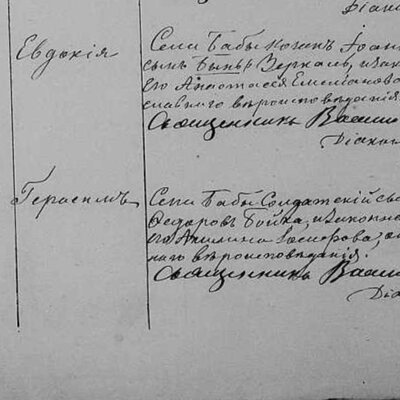 Діак
Евдокія
Села Бабы козакъ Іоан
сынъ Зеркаль, и зак
его Анастасія Емеліанов
славнаго вѣроисповѣданія
Священникъ Васи
Діакон
Герасимъ
Села Бабы Солдатскій сы
Федоровъ Бойка, и законна
его Акилина Іосифова, о
наго вѣроисповѣданія.
Священникъ Васи
Діа